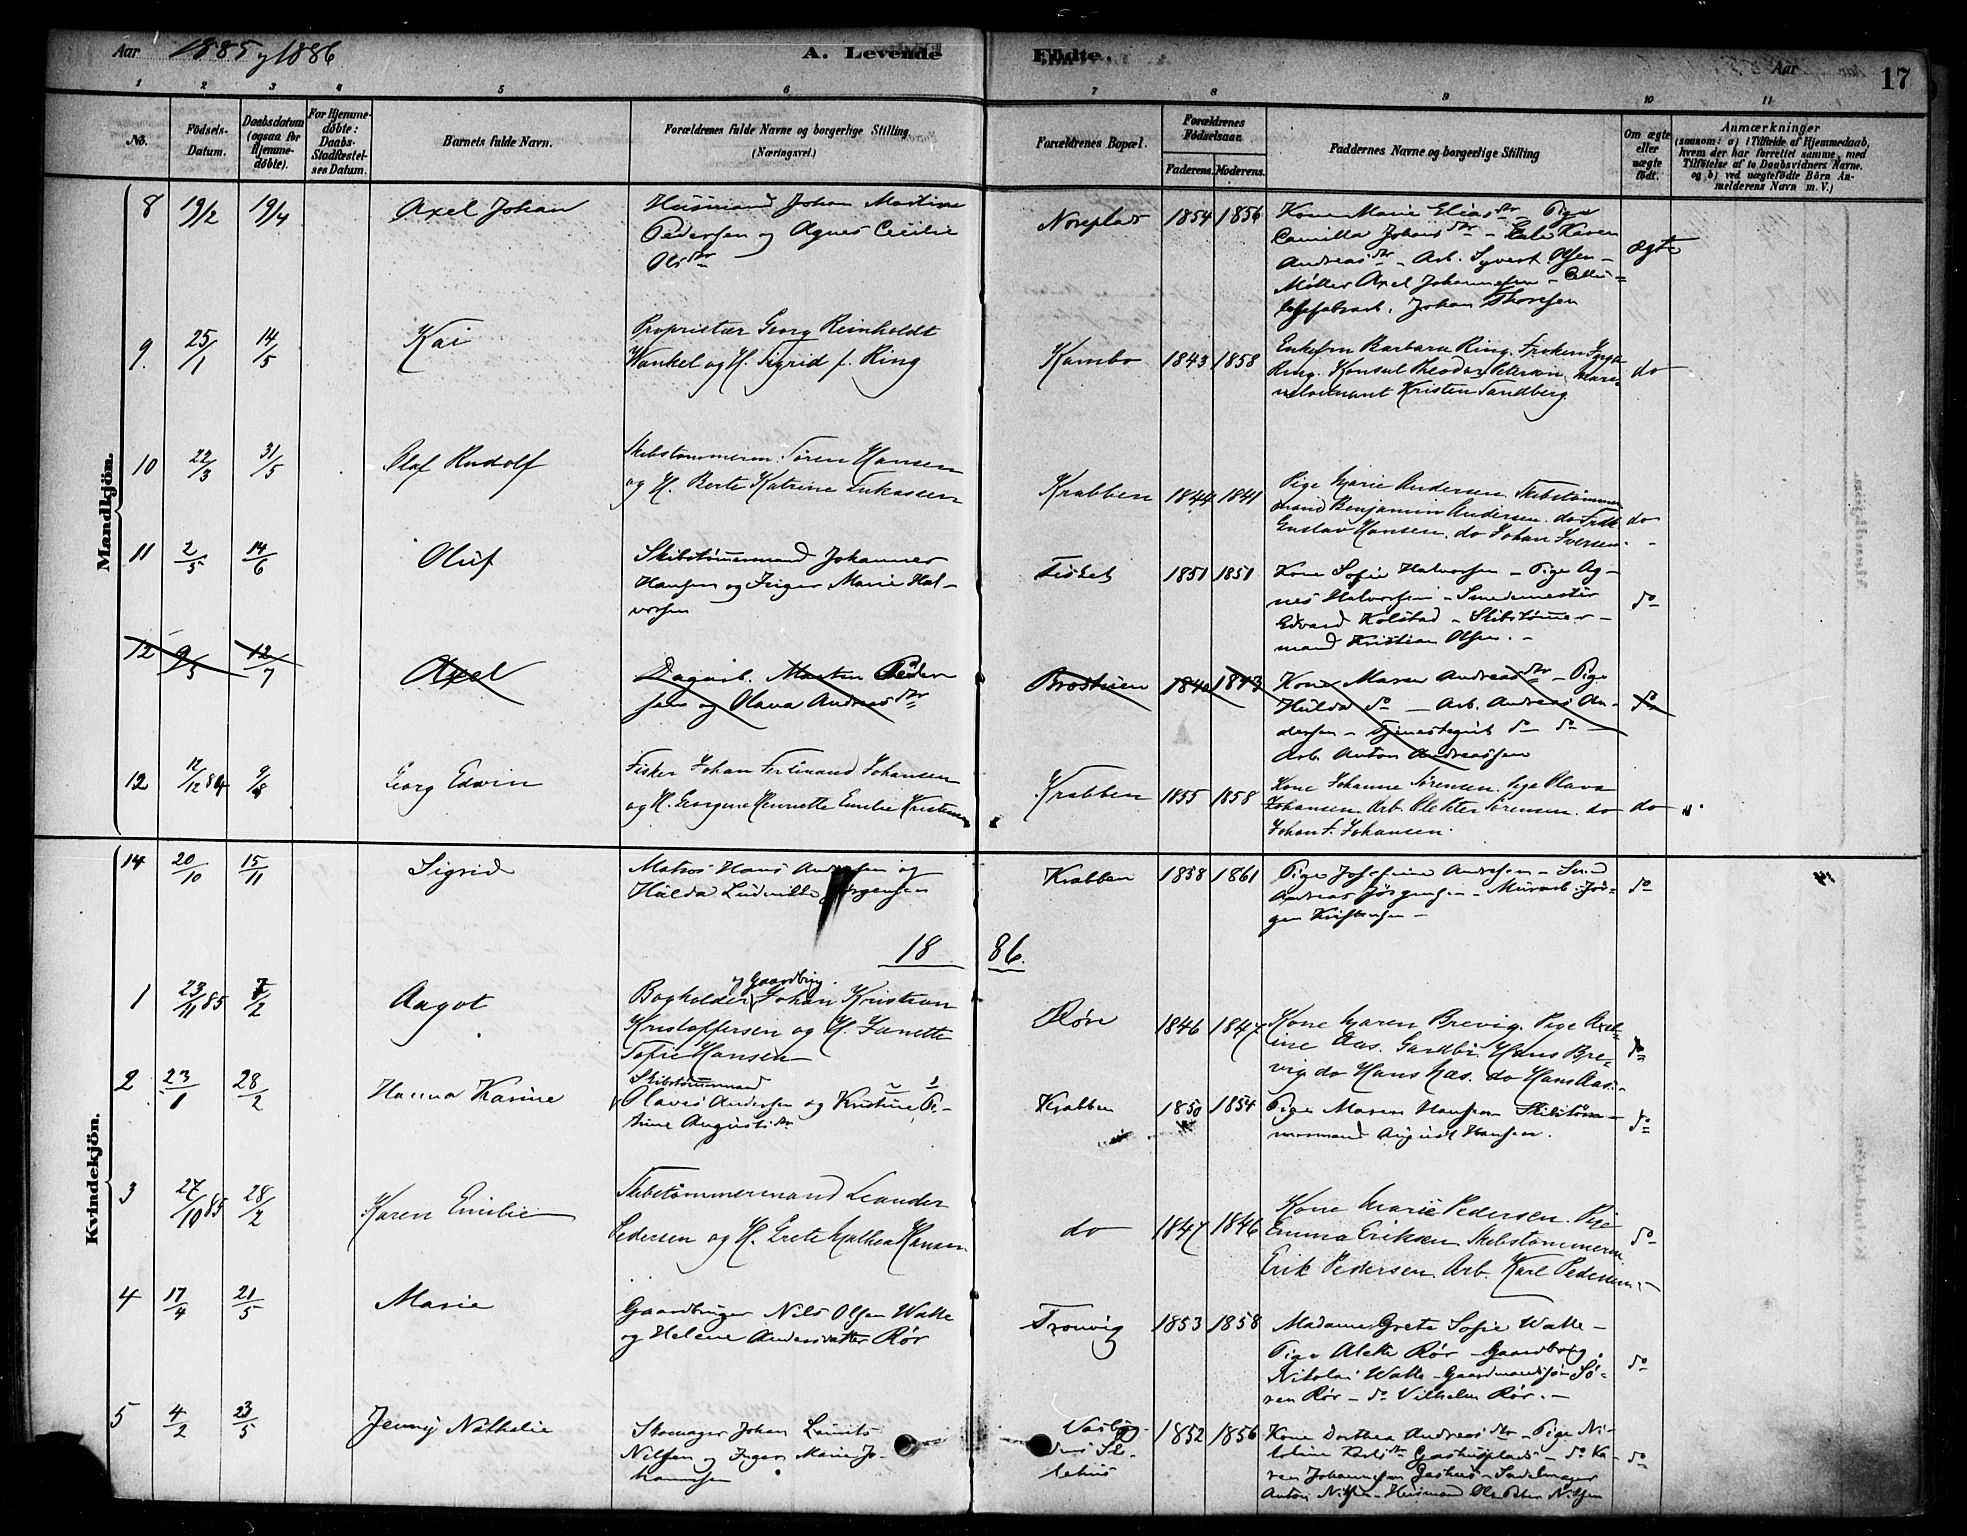 Aar 1885 og 1886 A. Levende Födte. Aar 17
1 2 3 4 5 6 7 8 9 10 11
No. Födsels-Datum. Daabsdatum (ogsaa for Hjemmedøbte). For Hjemmedøbte: Daabs-Stadfæstelses Datum. Barnets fulde Navn. Forældrenes fulde Navne og borgerlige Stilling (Næringsvei.) Forældrenes Bopæl. Forældrenes Födselsaar. Faderens. Moderens. Faddernes Navne og borgerlige Stilling Om ægte eller uægte født. Anmærkninger (saasom: a) i Tilfælde af Hjemmedaab, hvem der har forrettet samme, med Tilföielse af to Daabsvidners Navne. og b) ved uægtefödte Börn Anmelderens Navn m. V.)
Mandkjön.
8 19/2 19/4 Axel Johan Husmand Johan Martin Noreplads 1854 1856 Kone Marie Eliasdtr - Pige
Pedersen og Agnes Cecilie Camilla Johansdtr - Enke Karen ægte
Olsdtr Andreasdtr - Arb. Syvert Olsen -
Møller Axel Johannesen - Cellu-
losefabrarb. Johan Thoresen
9. 25/1 14/5 Kai Proprietær Georg Reinholdt Kambo 1843 1858 Enkefru Barbara Ring. Frøken
Wankel og H. Sigrid f. Ring Ring. Konsul Theodor Peterson, Mari- do
neloitnant Kristen Sandberg.
10 22/3 31/5 Olaf Rudolf Skibstømmerm. Søren Hansen Krabben 1844 1841 Pige Marie Andersen. Skibstømmer
og H. Berte Katrine Lukassen mand Benjamin Andersen. do Fredk do
Gustav Hansen. do Johan Iversen. -
11 2/5 14/6 Oluf Skibstømmermand Johannes Fisket 1851 1851 Kone Sofie Halvorsen - Pige Ag-
Hansen og Inger Marie Hal- nes Halvorsen - Smedemester do
vorsen Edvard Kolstad - Skibstømmer-
mand Kristian Olsen. -
12 9/5 12/7 Axel Dagarb. Martin Peder- Brostuen 1840 1843 Kone Maren Andreasdtr - Pige
sen og Olava Andreasdtr Hulda do - Arb. Andreas An- do
dersen - Tjenestegut do do -
Arb. Anton Andreassen
12 12/12 84 9/8 Georg Edvin Fisker Johan Ferdinand Johansen Krabben 1855 1858 Kone Johanne Sørensen. Pige Olava
og H. Georgine Hennette Emilie Kristensen Johansen. Arb. Plehter Sørensen. do do
Johan F. Johansen.
Kvindekjön.
14 20/10 15/11 Sigrid Matros Hans Andersen og Krabben 1858 1861 Pige Josefine Andersen - Smed
Hulda Ludvikke Jørgensen Andreas Jørgensen - Murarb. Jør- do
gen Kristensen -
18 86.
1 23/11 85 7/2 Aagot Bogholder og Gaardbrug. Johan Kristian Røre 1846 1847 Kone Maren Brevig. Pige Axel-
Kristoffersen og H. Janette ine Aas. Gardbr. Hans Bre- do
Sofie Hansen vig do Hans Aas. do Hans Aas. -
2 23/1 28/2 Hanna Karine Skibstømmermand Krabben 1850 1854 Pige Maren Hansen Skibstøm-
Olaves Andersen og Kristine Pe- mermand August Hansen. do
trine Augustsdtr
3 27/10 85 28/2 Karen Emilie Skibstømmermand Leander do 1847 1846 Kone Marie Pedersen. Pige
Pedersen og H. Grete Mathea Hansen Emma Eriksen Skibstømmerm. do
Erik Pedersen. Arb. Karl Pedersen. -
4 17/4 21/5 Marie Gaardbruger Nils Olsen Walle Tronvig 1853 1858 Madame Grete Sofie Walle -
og Helene Andersdatter Rør Pige Alette Rør - Gaardbrug.
Nikolai Walle - Gaardmandssøn Sø- do
ren Rør - do Vilhelm Rør. -
5 4/2 23/5 Jenny Nathalie Skomager Johan Laurits 1852 1856 Kone Dorthea Andreasdtr - Pige Ni-
Nilsen og Inger Marie Jo- do Ka- do
hannesen ren Johannesen Gashus - Sadelmager
Anton Nilsen - Husmand Ole Peter Nilsen